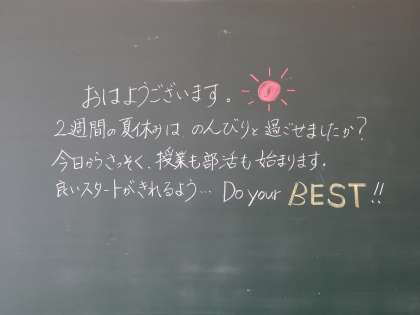 おはようございます。
2週間の夏休みは のんびりと過ごせましたか?
今日からさっそく、授業も部活も始まります。
良いスタートがきれるよう… Do your BEST!!